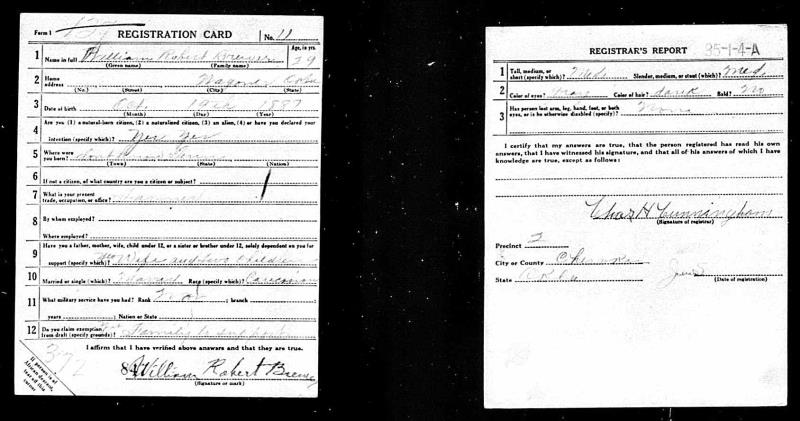 Form 1
REGISTRATION CARD No. 11
1 Name in full William Robert Brewer Age, in yrs. 29
(Given name) (Family name)
2 Home address Wagoner Okla
(No.) (Street) (City) (State)
3 Date of birth Oct. 19th 1887
(Month) (Day) (Year)
4 Are you (1) a natural-born citizen, (2) a naturalized citizen, (3) an alien, (4) or have you declared your
intention (specify which)? Yes Yes
5 Where were you born?
(Town) (State) (Nation)
6 If not a citizen, of what country are you a citizen or subject?
7 What is your present trade, occupation, or office?
8 By whom employed?
Where employed?
9 Have you a father, mother, wife, child under 12, or a sister or brother under 12, solely dependent on you for
support (specify which)? Wife and two children
10 Married or single (which)? Married Race (specify which)? Caucasian
11 What military service have you had? Rank ; branch
years ; Nation or State
12 Do you claim exemption from draft (specify grounds)? Family to support
I affirm that I have verified above answers and that they are true.
William Robert Brewer
(Signature or mark)
If person is of
African descent,
tear off this
corner
REGISTRAR'S REPORT 35-1-4-A
1 Tall, medium, or short (specify which)? Med Slender, medium, or stout (which)? Med
2 Color of eyes? Color of hair? dark Bald? No
3 Has person lost arm, leg, hand, foot, or both
eyes, or is he otherwise disabled (specify)? None
I certify that my answers are true, that the person registered has read his own
answers, that I have witnessed his signature, and that all of his answers of which I have
knowledge are true, except as follows:
Chas H Cunningham
(Signature of registrar)
Precinct 2
City or County Cherokee
State Okla June 5
(Date of registration)